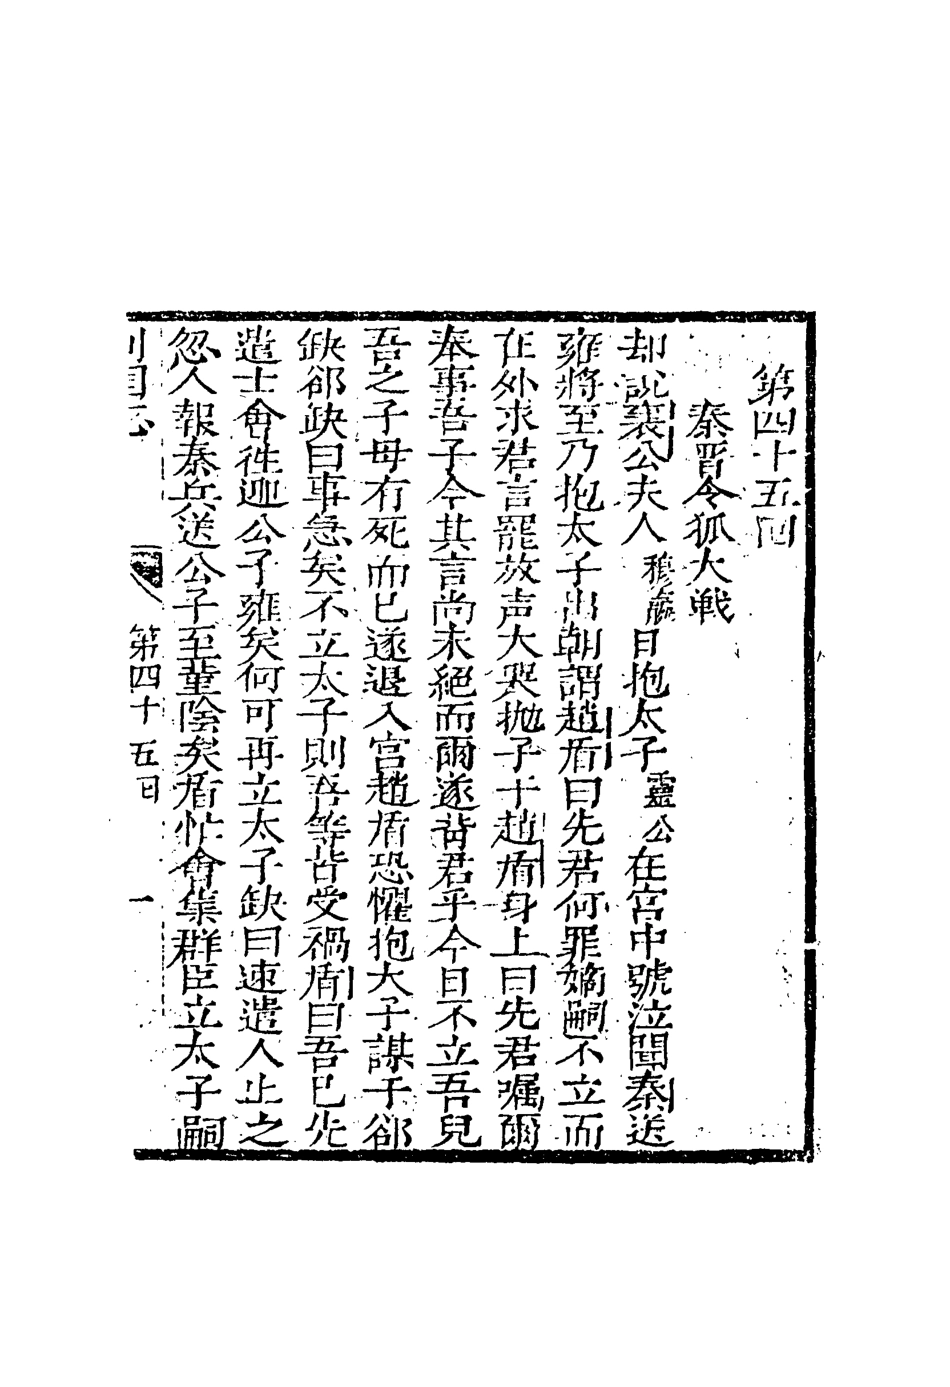 第四十五回
秦晋令狐大戦
却説襄公夫人穆嬴日抱太子靈公在宮中號泣聞秦送
雍將至乃抱太子出朝謂趙盾曰先君何罪嫡嗣不立而
在外求君言罷放声大哭抛子于趙盾身上曰先君嘱爾
奉事吾子今其言尚未絕而爾遂背君乎今日不立吾兒
吾之子母有死而已遂退入宮趙盾恐懼抱大子謀于郤
缺郤缺曰事急矣不立太子則吾等皆受禍盾曰吾已先
遣士會徃迎公子雍矣何可再立太子缺曰速遣人止之
忽人報秦兵送公子至菫陰矣盾忙會集群臣立太子嗣
列国志 第四十五回 一